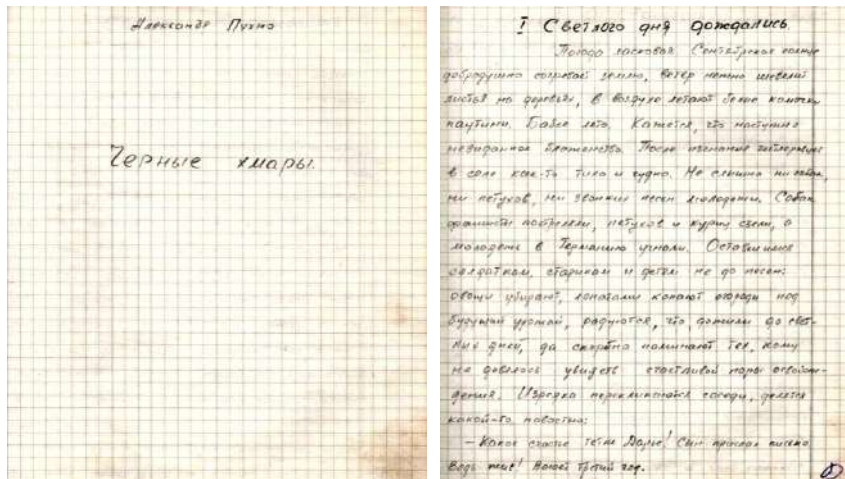 Александр Пухно
Черные хмары.
I Светлого дня дождались.
Погода ласковая. Сентябрьское солнце
добродушно согревает землю, ветер нежно шевелит
листья на деревьях, в воздухе летают белые комочки
паутины. Бабье лето. Кажется, что наступило
невиданное блаженство. После изгнания гитлеровцев
в селе как-то тихо и чудно. Не слышно ни собак,
ни петухов, ни звонких песен молодежи. Собак
фашисты постреляли, петухов и куриц съели, а
молодежь в Германию угнали. Оставшимся
солдаткам, старикам и детям не до песен:
овощи убирают, лопатами копают огороды под
будущий урожай, радуются, что дожили до свет-
лых дней, да скорбно поминают тех, кому
не довелось увидеть счастливой поры освобож-
дения. Изредка перекликаются соседи, делятся
какой-то новостью:
— Какое счастье тетке Дарье! Сын прислал письмо.
Ведь жив! Воюет третий год.